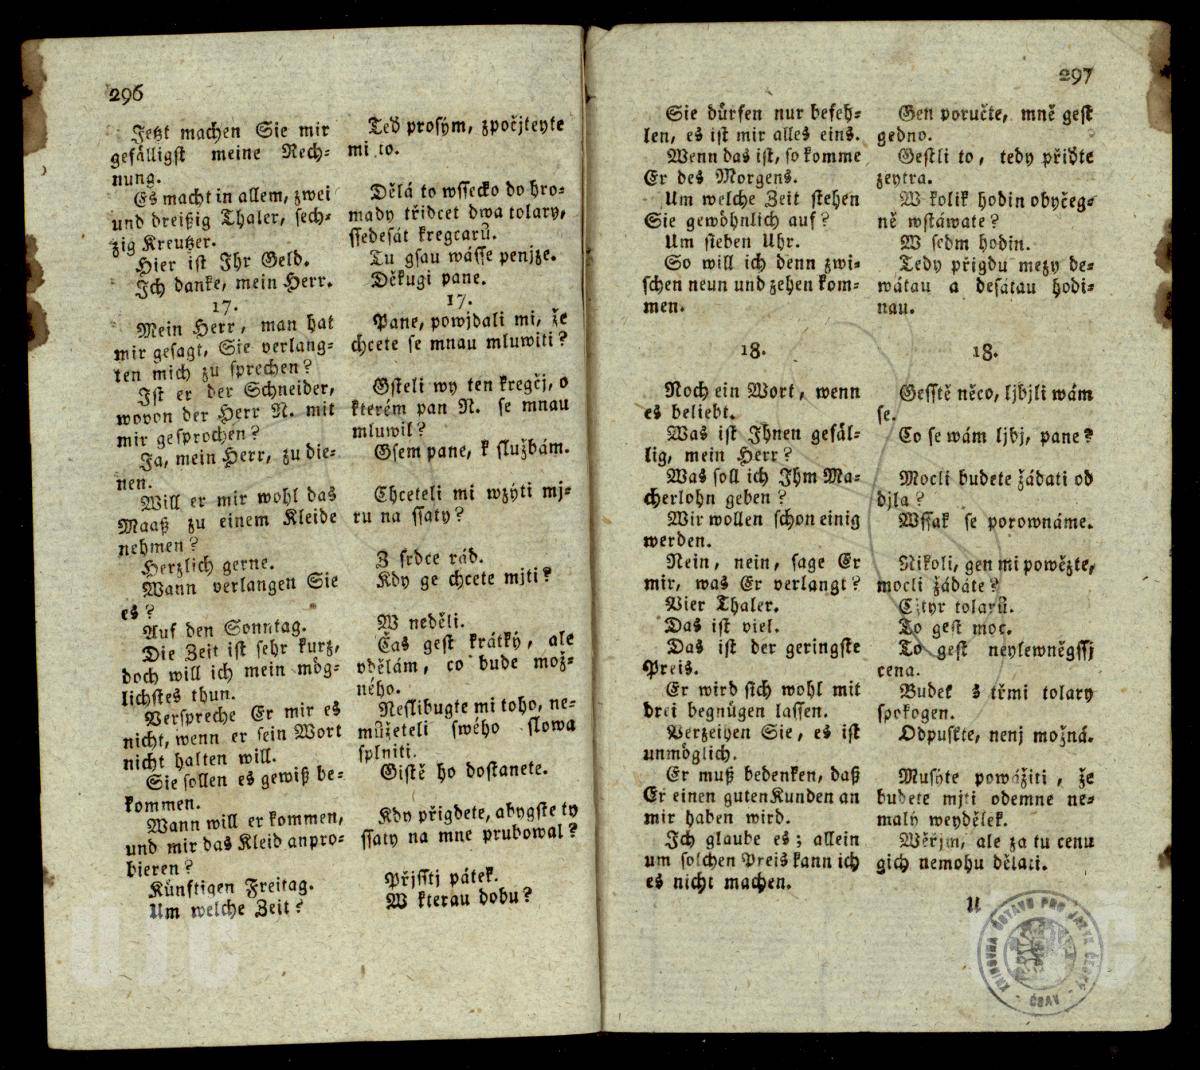 296
Jetzt machen Sie mir
gefälligst meine Rech-
nung.
Es macht in allem, zwei
und dreißig Thaler, sech-
zig Kreutzer.
Hier ist Ihr Geld.
Ich danke, mein Herr.
17.
Mein Herr, man hat
mir gesagt, Sie verlang-
ten mich zu sprechen?
Ist er der Schneider,
wovon der Herr N. mit
mir gesprochen?
Ja, mein Herr, zu die-
nen.
Will er mir wohl das
Maaß zu einem Kleide
nehmen?
Herzlich gerne.
Wann verlangen Sie
es?
Auf den Sonntag.
Die Zeit ist sehr kurz,
doch will ich mein mög-
lichstes thun.
Verspreche Er mir es
nicht, wenn er sein Wort
nicht halten will.
Sie sollen es gewiß be-
kommen.
Wann will er kommen,
und mir das Kleid anpro-
bieren?
Künftigen Freitag.
Um welche Zeit?
Teď prosým, zpočjteyte
mi to.
Dělá to wssecko do hro-
mady třidcet dwa tolary,
ssedesát kregcarů.
Tu gsau wásse penjze.
Děkugi pane.
17.
Pane, powjdali mi, že
chcete se mnau mluwiti?
Gsteli wy ten kregčj, o
kterém pan N. se mnau
mluwil?
Gsem pane, k službám.
Chceteli mi wzýti mj-
ru na ssaty?
Z srdce rád.
Kdy ge chcete mjti?
W neděli.
Čas gest krátký, ale
vdělám, co bude mož-
ného.
Neslibugte mi toho, ne-
můžeteli swého slowa
splniti.
Gistě ho dostanete.
Kdy přigdete, abygste ty
ssaty na mne prubowal?
Přjsstj pátek.
W kterau dobu?
297
Sie dürfen nur befeh-
len, es ist mir alles eins.
Wenn das ist, so komme
Er des Morgens.
Um welche Zeit stehen
Sie gewöhnlich auf?
Um sieben Uhr.
So will ich denn zwi-
schen neun und zehen kom-
men.
18.
Noch ein Wort, wenn
es beliebt.
Was ist Ihnen gefäl-
lig, mein Herr?
Was soll ich Ihm Ma-
cherlohn geben?
Wir wollen schon einig
werden.
Nein, nein, sage Er
mir, was Er verlangt?
Vier Thaler.
Das ist viel.
Das ist der geringste
Preis.
Er wird sich wohl mit
drei begnügen lassen.
Verzeihen Sie, es ist
unmöglich.
Er muß bedenken, daß
Er einen guten Kunden an
mir haben wird.
Ich glaube es; allein
um solchen Preis kann ich
es nicht machen.
Gen poručte, mně gest
gedno.
Gestli to, tedy přiďte
zeytra.
W kolik hodin obyčeg-
ně wstáwate?
W sedm hodin.
Tedy přigdu mezy de-
wátau a desátau hodi-
nau.
18.
Gesstě něco, ljbjli wám
se.
Co se wám ljbj, pane?
Mocli budete žádati od
djla?
Wssak se porownáme.
Nikoli, gen mi powězte,
mocli žádáte?
Cžtyr tolarů.
To gest moc.
To gest neylewněgssj
cena.
Budek s třmi tolary
spokogen.
Odpuste, nenj možná.
Musýte powážiti, že
budete mjti odemne ne-
malý weydělek.
Wěřjm, ale za tu cenu
gich nemohu dělati.
U
KNIHOVNA ÚSTAVU PRO JAZYK ČESKÝ - ČSAV -